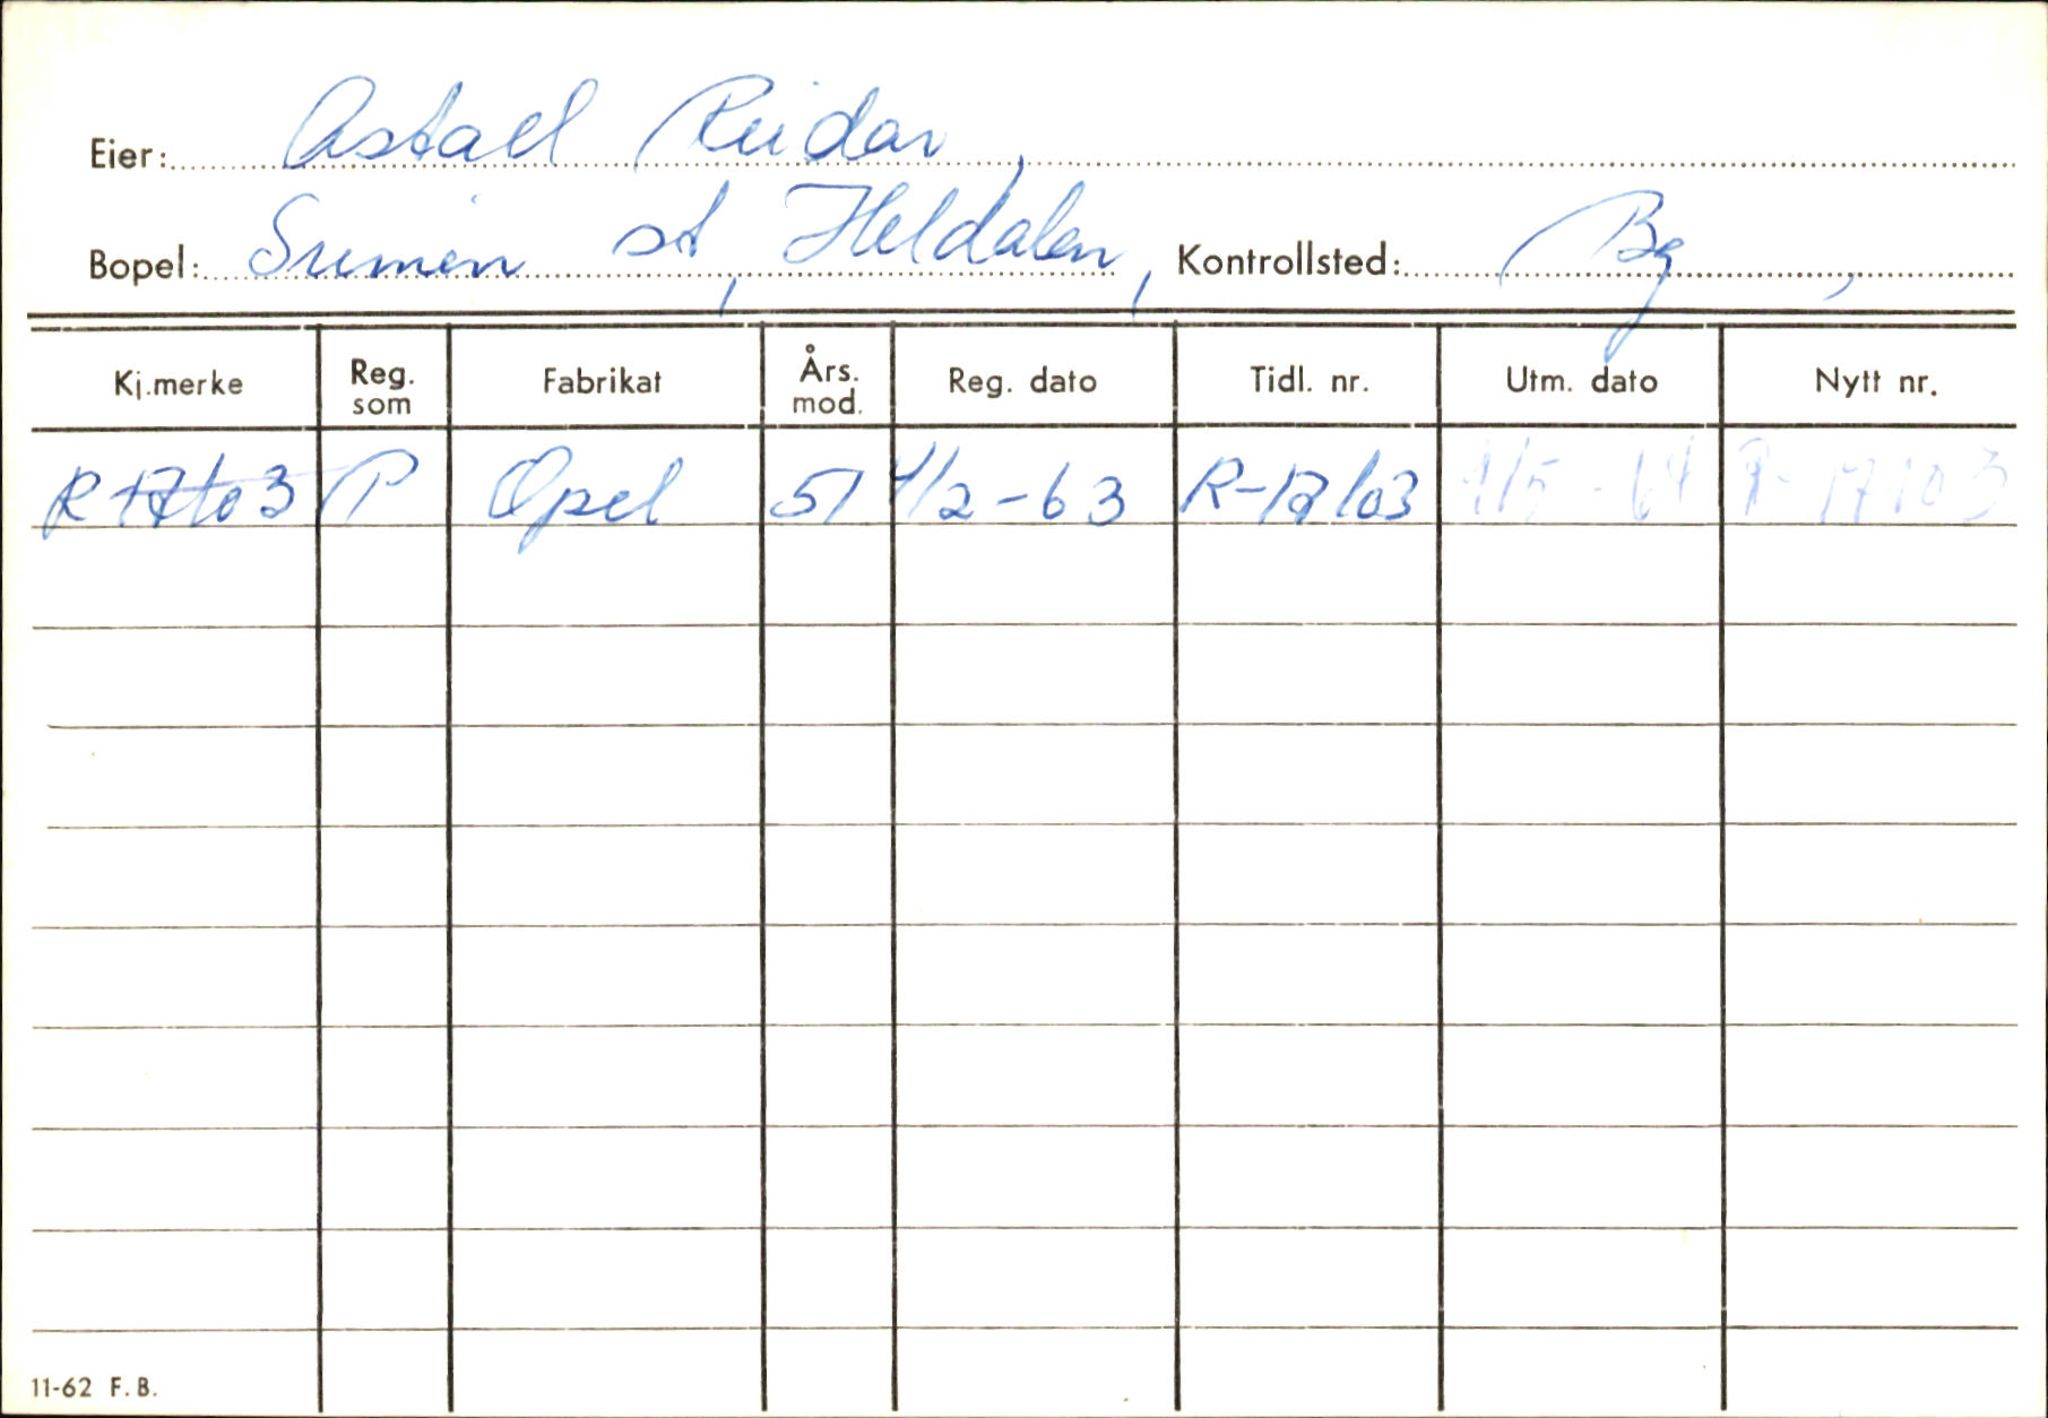 Eier: Astad Reidar,
Bopel: Srimen st, Heldalen, Kontrollsted: Bg,
Kj.merke Reg. som Fabrikat Års. mod. Reg. dato Tidl. nr. Utm. dato Nytt nr.
R 17103 P Opel 51 4/2-63 R-17103 4/5-64 R-17103
11-62 F.B.